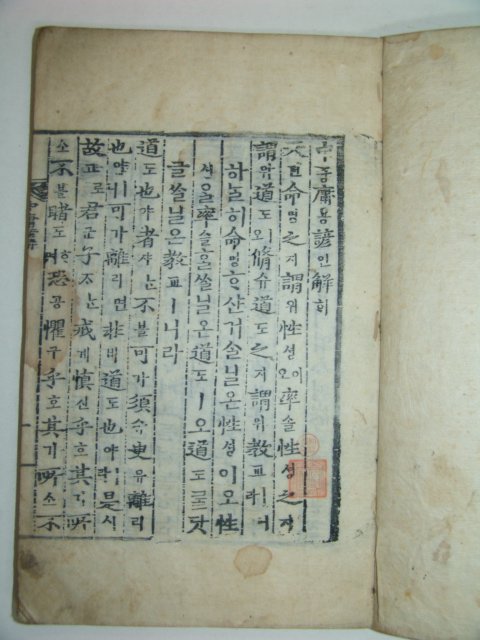 中듕庸용諺언解ᄒᆡ
天텬命명之지謂위性셩이오率솔性셩之지
謂위道도ㅣ오脩슈道도之지謂위敎교ㅣ니라
하ᄂᆞᆯ히命명ᄒᆞ샨거슬닐온性셩이오性
셩을率솔ᄒᆞᆯ쓸닐온道도ㅣ오道도ᄅᆞᆯ닷
글쓸닐온敎교ㅣ니라
道도也야者쟈ᄂᆞᆫ不블可가須슈臾유離리
也야ㅣ니可가離리면非비道도也야ㅣ라是시
故고로君군子ᄌᆞᄂᆞᆫ戒계愼신乎호其기所
소不블睹도ᄒᆞ며恐공懼구乎호其기所소不